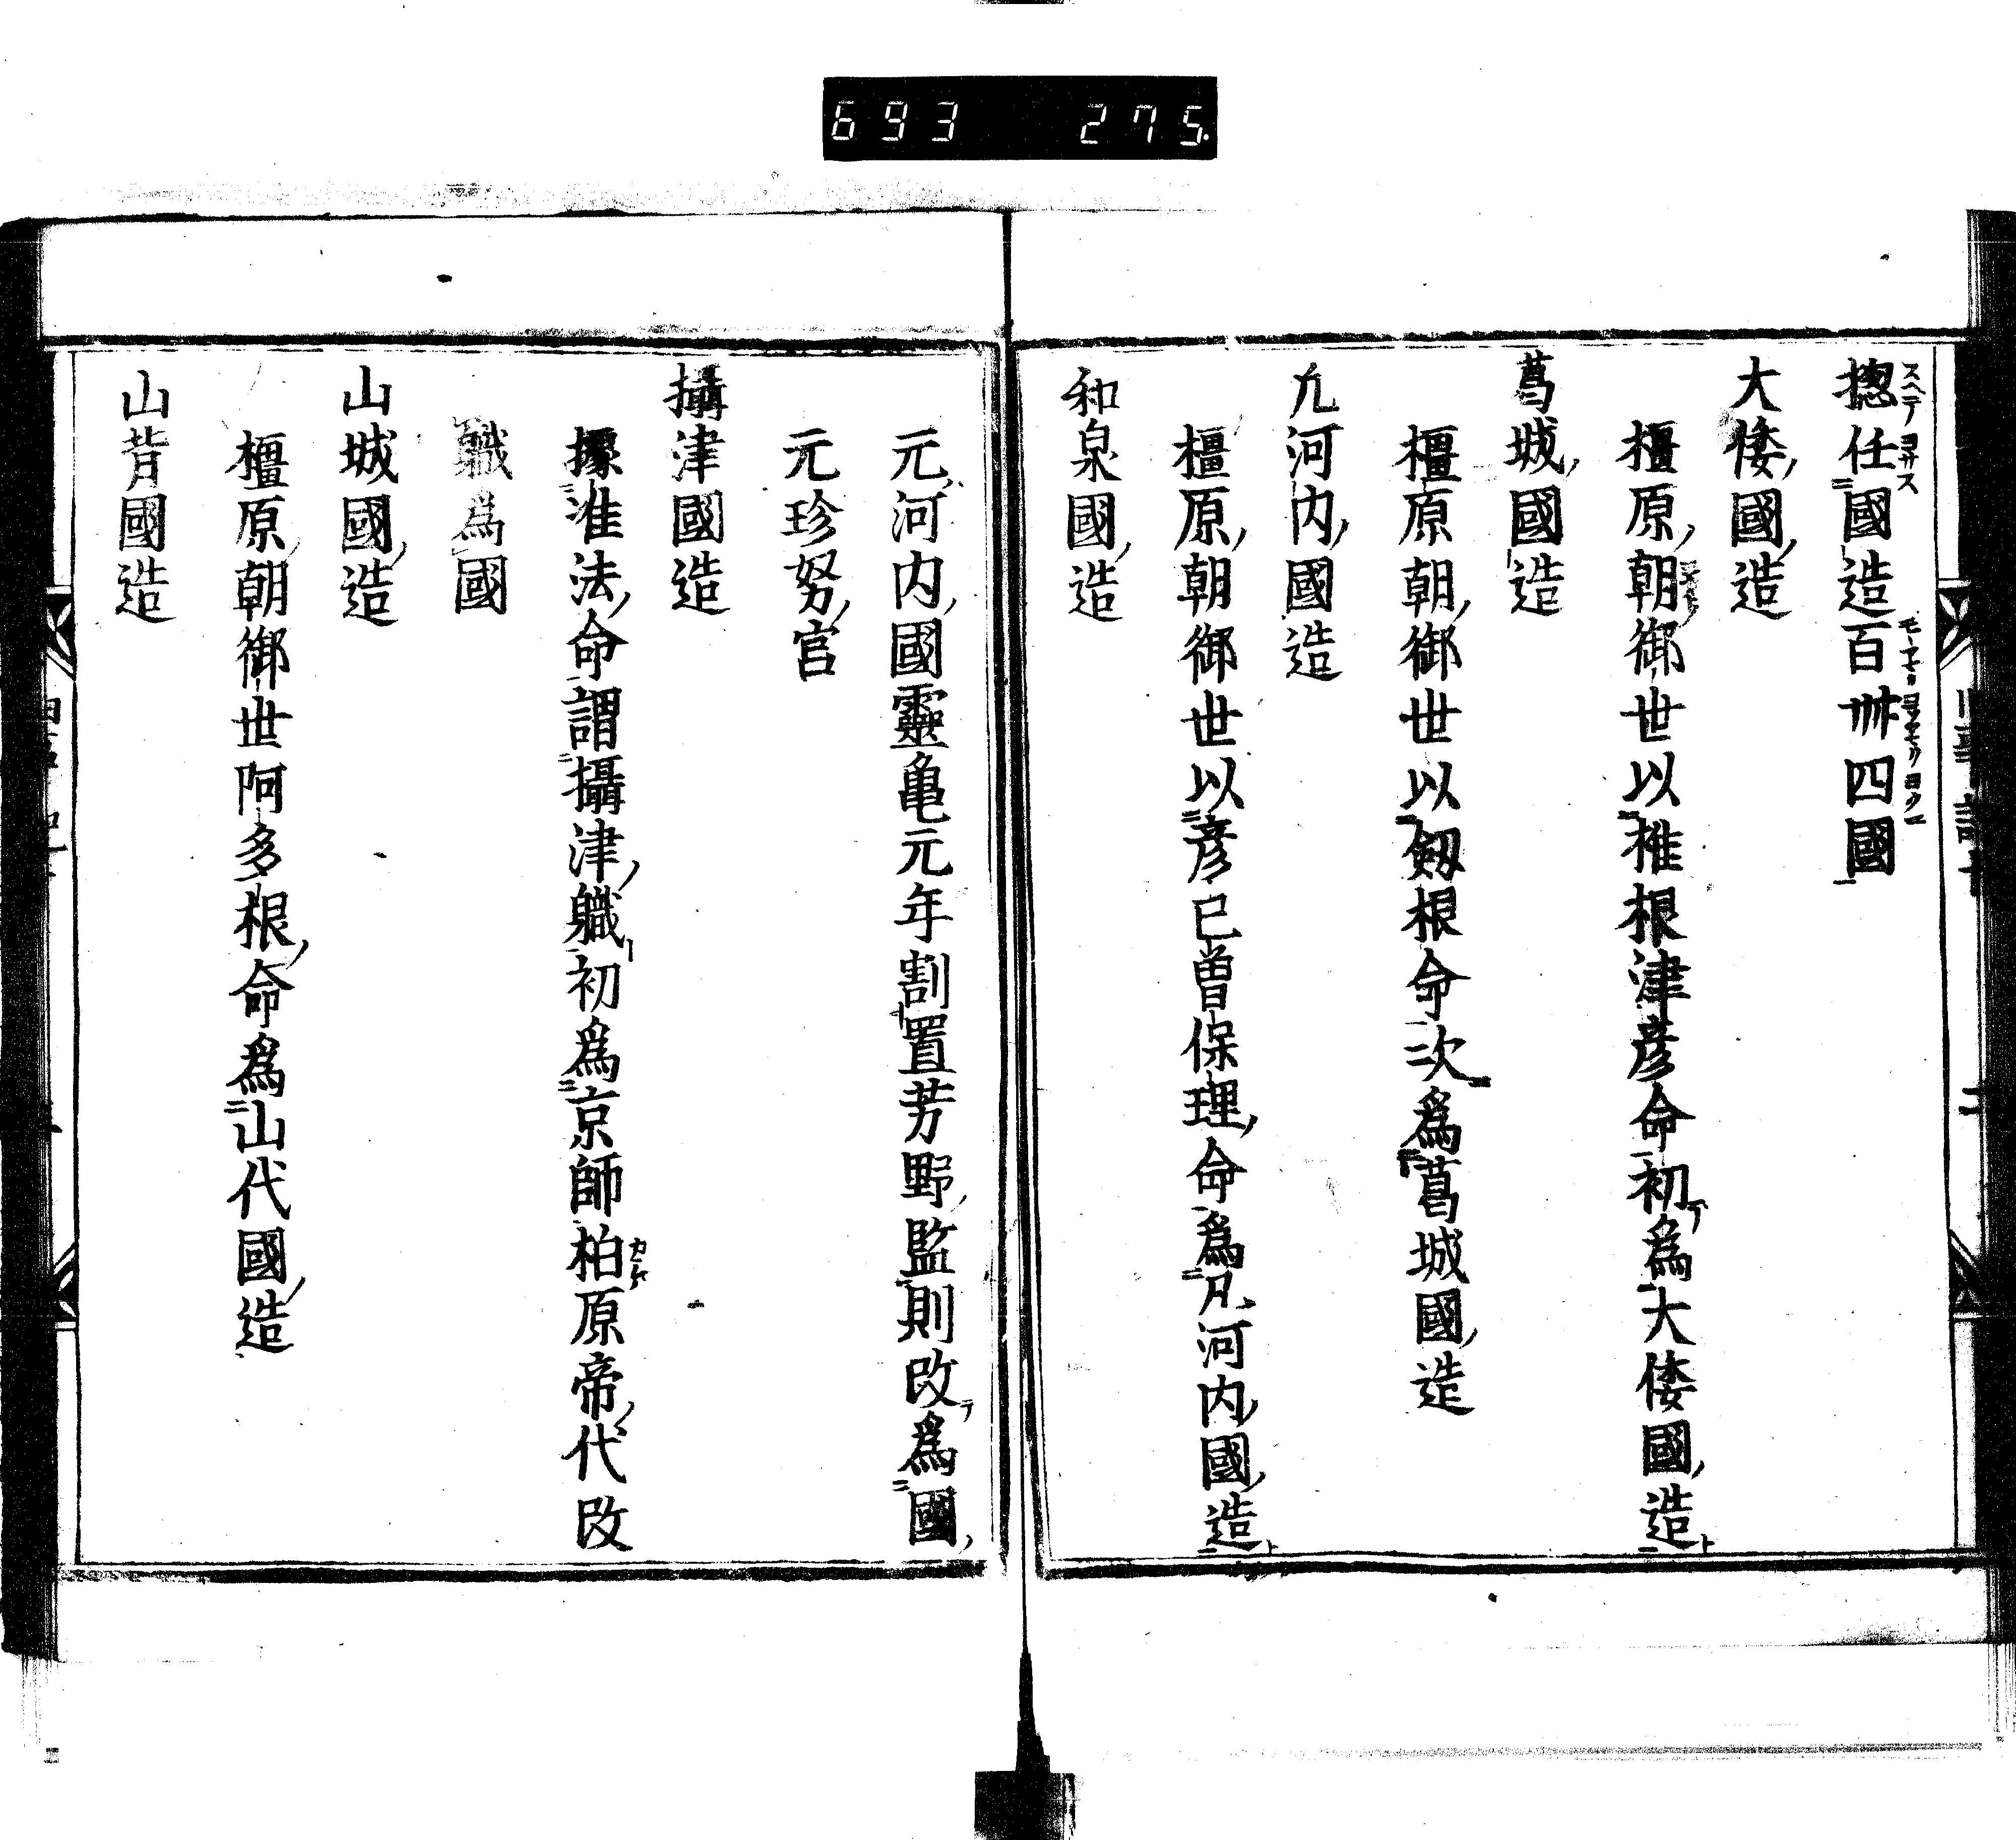 693 275.
揔任國造百卌四國
大倭國造
橿原朝御世以椎根津彦命初為大倭國造
葛城國造
橿原朝御世以劔根命次為葛城國造
凡河内國造
橿原朝御世以彦已曽保理命為凡河内國造
和泉國造
元河内國靈亀元年割置芳野監則改為國
元珍努官
攝津國造
據准法命謂攝津職初為京師柏原帝代改
職為國
山城國造
橿原朝御世阿多根命為山代國造
山背國造